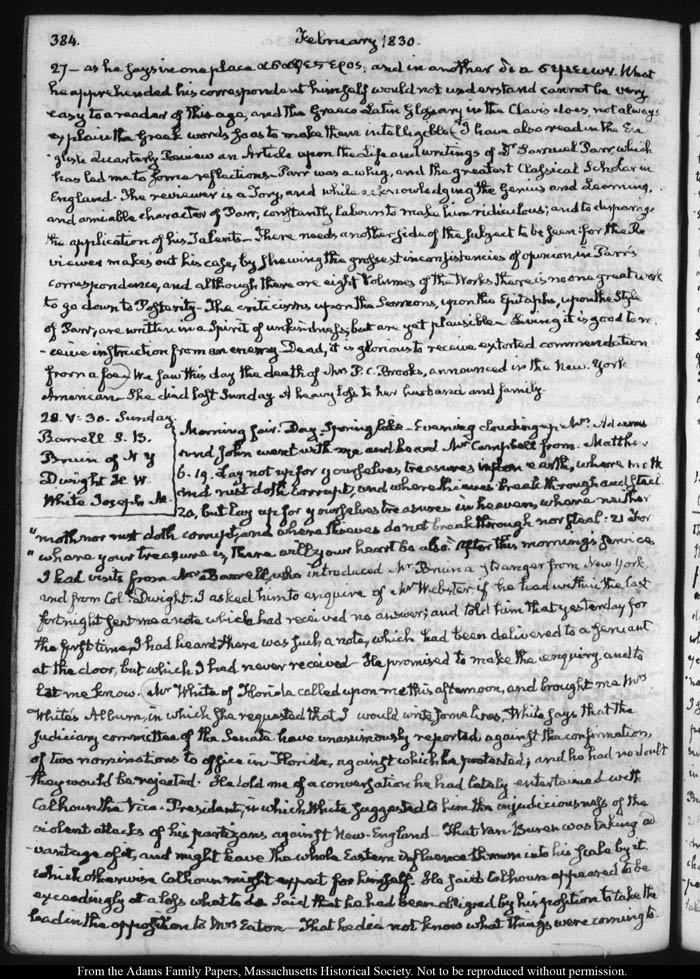 384. February 1830.
27 — as he says in one place and in another What
he apprehended his correspondent himself would not understand cannot be very
easy to a reader of this age, and the Graeco Latin Glossary in the Clavis does not always
explain the Greek words so as to make them intelligible. I have also read in the En
glish Quarterly Review an Article upon the Life and writings of Dr Samuel Parr, which
has led me to some reflections — Parr was a whig, and the greatest Classical Scholar in
England. The reviewer is a Tory, and while acknowledging the Genius and Learning,
and amiable character of Parr, constantly labours to make him ridiculous; and to disparage
the application of his Talents — There needs another side of the subject to be seen: for the Re
viewer makes out his case, by shewing the grossest inconsistencies of opinion, in Parr's
correspondence, and although there are eight Volumes of the Works there is no one great work
to go down to Posterity — The criticisms upon the Sermons, upon the Epitaphs, upon the Style
of Parr, are written in a Spirit of unkindness; but are yet plausible — Living it is good to re
-ceive instruction from an enemy Dead, it is glorious to receive extorted commendation
from a foe — We saw this day the death of Mrs P. C. Brooks, announced in the New-York
American — She died last Sunday A heavy loss to her husband and family.
28. V: 30. Sunday.
Barrell S. B.
Bruin of N Y
Dwight H. W.
White Joseph M.
Morning fair. Day Springlike — Evening clouding up Mrs Adams
and John went with me and heard Mr Campbell from Matthew
6. 19. Lay not up for yourselves treasures upon earth, where moth
and rust doth corrupt, and where thieves break through and steal
20, but lay up for yourselves treasures in heaven, where neither
"moth nor rust doth corrupt, and where thieves do not break through nor steal: 21 For
"where your treasure is, there will your heart be also. After this morning's service
I had visits from Mr Barrell, who introduced Mr Bruin a stranger from New York,
and from Col. Dwight. I asked him to enquire of Mr Webster if he had within the last
fortnight sent me a note which had received no answer; and told him that yesterday for
the first time, I had heard there was such a note, which had been delivered to a servant
at the door, but which I had never received — He promised to make the enquiry and to
let me know. Mr White of Florida called upon me this afternoon, and brought me Mrs
White's Album, in which she requested that I would write some lines. White says that the
Judiciary committee of the Senate have unanimously reported against the confirmation,
of two nominations to office in Florida, against which he protested; and he had no doubt
they would be rejected. He told me of a conversation he had lately entertained with
Calhoun the Vice-President, in which White suggested to him the injudiciousness of the
violent attacks of his partizans against New-England — That Van-Buren was taking ad
-vantage of it, and might have the whole Eastern influence thrown into his scale by it
which otherwise Calhoun might expect for himself. He said Calhoun appeared to be
exceedingly at a loss what to do Said that he had been obliged by his position to take the
lead in the opposition to Mrs Eaton — That he did not know what things were coming to
From the Adams Family Papers, Massachusetts Historical Society. Not to be reproduced without permission.